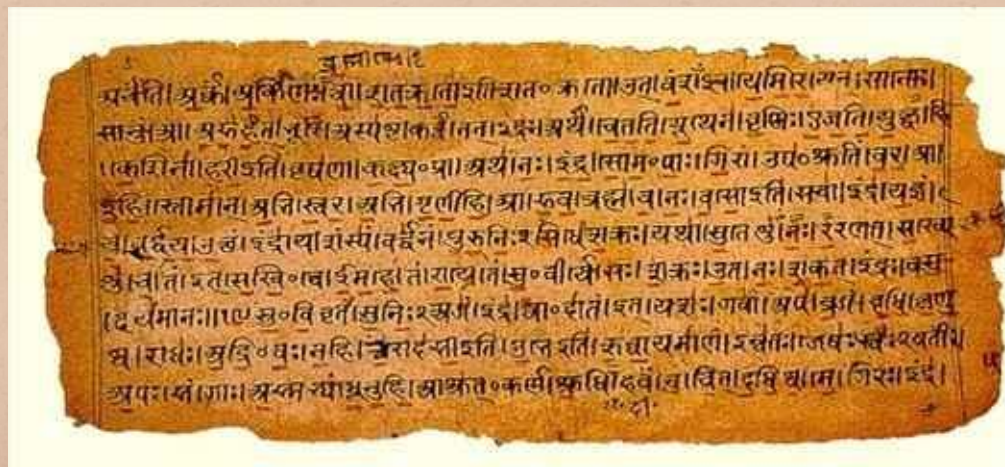 ब्रह्माणः
अर्चंति। अर्कं। अर्किणः। त्वा। शतक्रतो इति शत॰क्रतो। उत्। वंशंऽइव। येमिरे। यत्। सानोः।
सानुं। आ। अरुहत्। भूरि। अस्पष्ट। कर्त्वं। तत्। इंद्रः। अर्थं। चेतति। यूथेन। वृष्णिः। एजति। युक्ष्व। हि
। केशिना। हरी इति। वृषणा। कक्ष्य॰प्रा। अथ। नः। इंद्र। सोम॰पाः। गिरां। उप॰श्रुतिं। चर। आ।
इहि। स्तोमान्। अभि। स्वर। अभि। गृणीहि। आ। रुव। ब्रह्म। च। नः। वसो इति। सचा। इंद्र। यज्ञं।
च। वर्द्धय। उक्थं। इंद्राय। शंस्यं। वर्द्धनं। पुरुनिःऽसिधे। शक्रः। यथा। सुतेषु। नः। ररणत्। सख्ये
षु। च। तं। इत्। सखि॰त्वे। ईमहे। तं। राये। तं। सु॰वीर्ये। सः। शक्रः। उत। नः। शकत्। इंद्रः। वसु
। दयमानः॥१९ सु॰विवृतं। सुनिःऽअजं। इंद्र। त्वा॰दातं। इत्। यशः। गवां। अप। व्रजं। वृधि। कृणु
ष्व। राधः। अद्रि॰वः। नहि। त्वा। रोदसी इति। उभे इति। ऋघायमाणं। इन्वतः। जेषः। स्वः॰वतीः।
अपः। सं। गाः। अस्मभ्यं। धूनुहि। आश्रुत्॰कर्ण। श्रुधि। हवं। नु। चित्। दधिष्व। मे। गिरः। इंद्र।